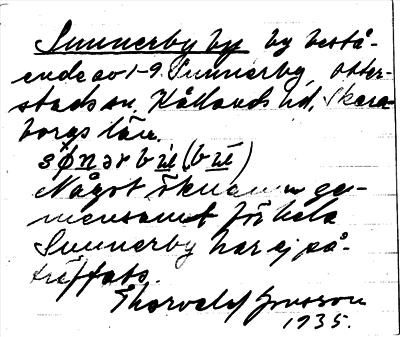 Sunnerby by by bestå-
ende av 1-9 Sunnerby, Otter-
stads sn, Kållands hd, Skara-
borgs län.
sønər bẙ (bẙ)
Något öknamn ge-
mensamt för hela
Sunnerby har ej på-
träffats.
Thorvald Jonsson
1935.